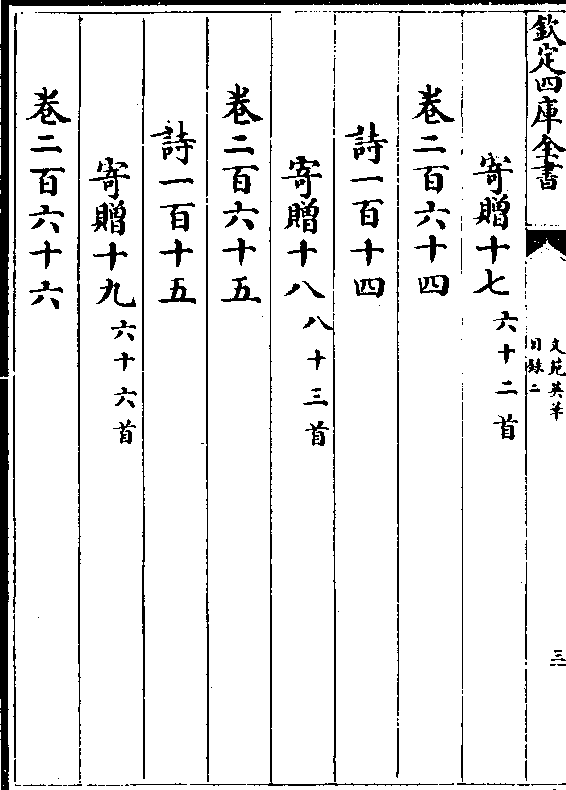 欽定四庫全書
文苑英華
目録二
三
寄贈十七六十二首
卷二百六十四
詩一百十四
寄贈十八八十三首
卷二百六十五
詩一百十五
寄贈十九六十六首
卷二百六十六